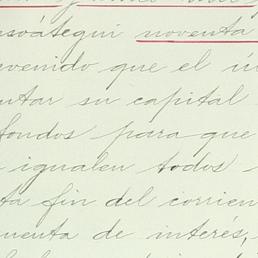 nsoátegui noventa
venido que el ú
ntar su capital
fondos para que
igualen todos
ta fin del corrien
uenta de interés,